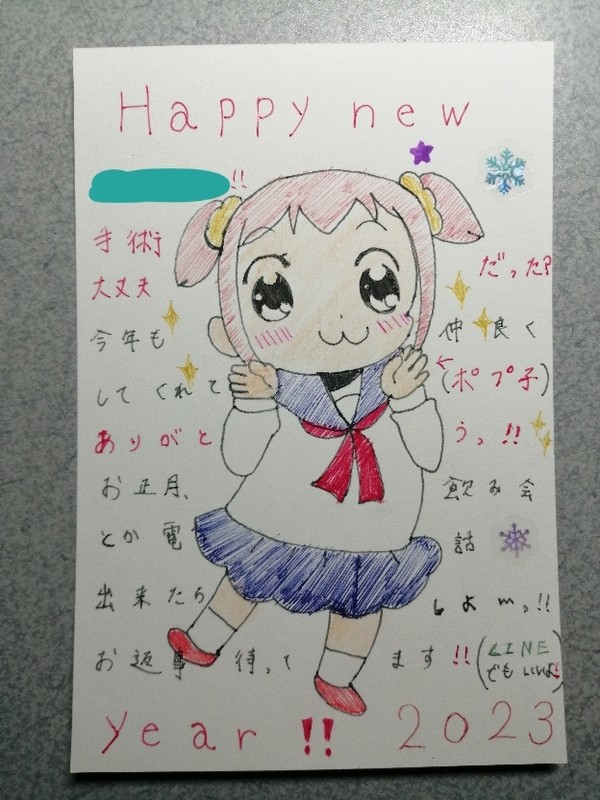 Happy new
!!
手術 だった?
大丈夫
今年も 仲良く
してくれて (ポプ子)
ありがとう。!!
お正月、飲み会
とか電話
出来たらしよー。!!
お返事待って ます!! (LINE
でもいいよ!)
year!! 2023